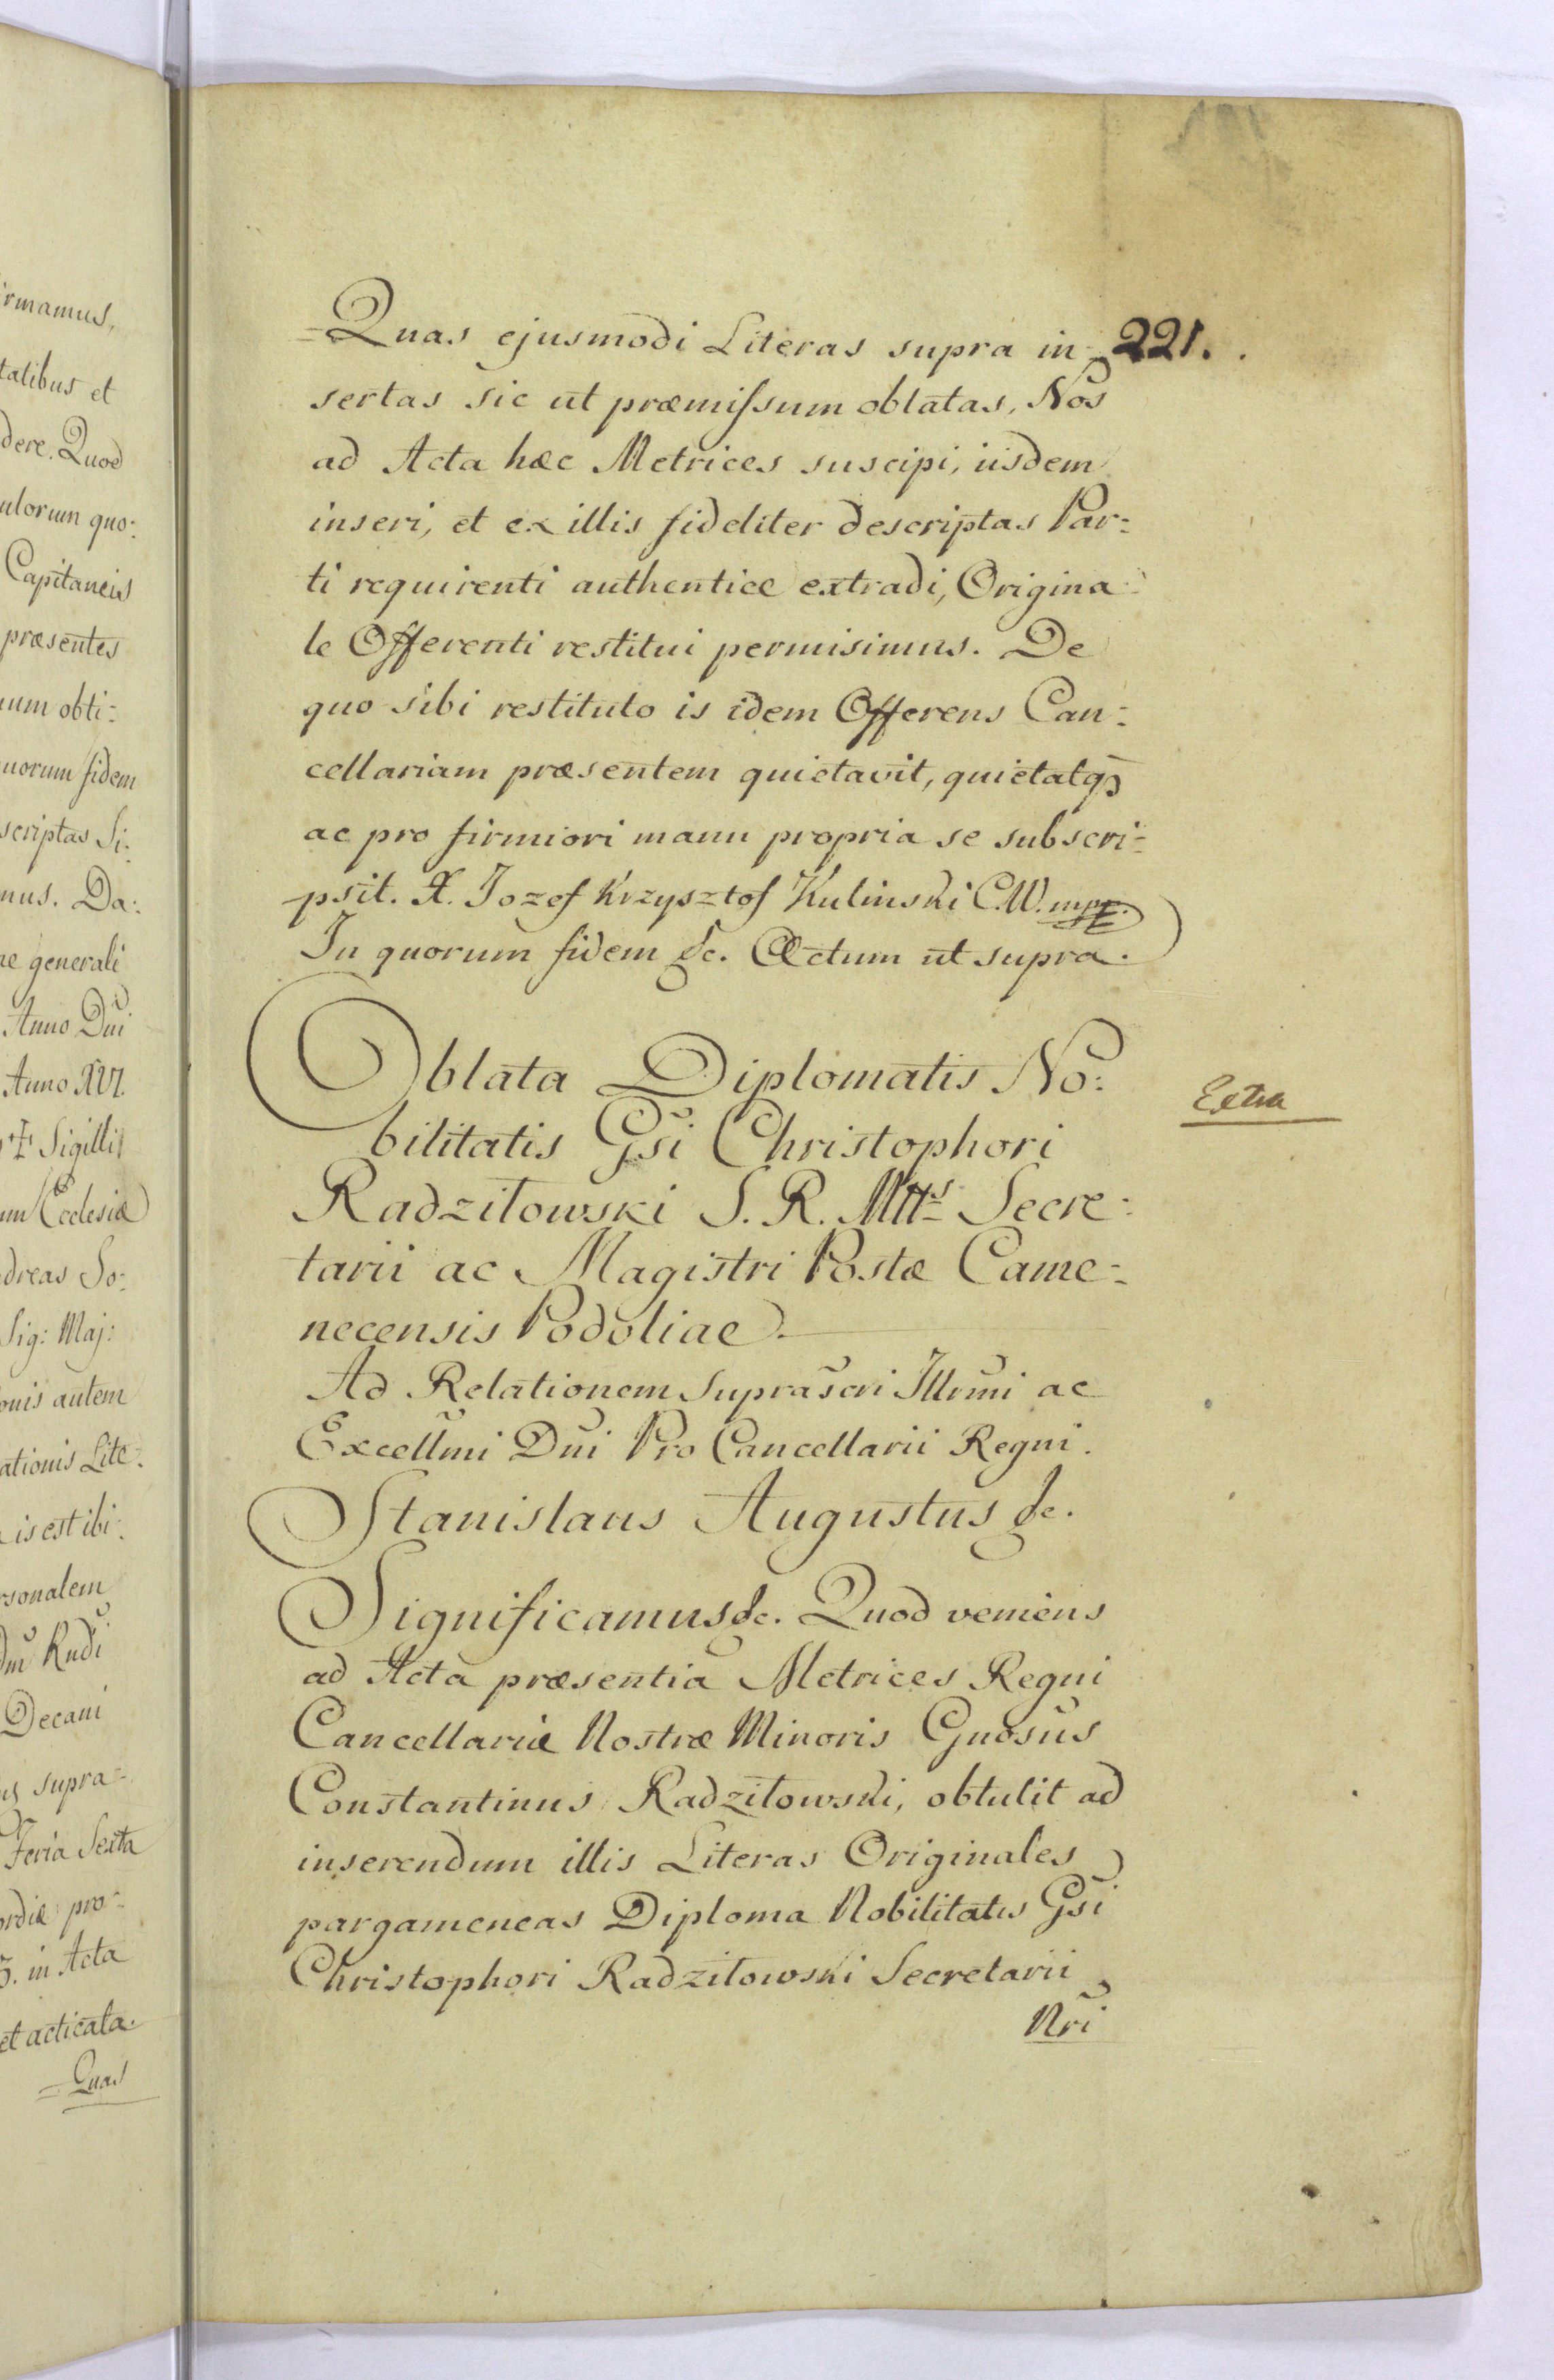 irmamus,
tatibus et
dere. Quod
ulorum quo:
Capitaneis
præsentes
uum obti:
uorum fidem
scriptas Si:
mus. Da:
ae generali
Anno Dni
Anno XVI.
Sigilli
um Ecclesiæ
dreas So:
Sig: Maj:
onis autem
ationis Lite:
is est ibi:
rsonalem
Rndi
Decani
supra-
Feria Sexta
ordiæ pro-
in Acta
et acticata.
Quas
221.
Quas ejusmodi Literas supra in-
sertas sic ut præmissum oblatas, Nos
ad Acta hæc Metrices suscipi, iisdem
inseri, et ex illis fideliter descriptas Par:
ti requirenti authentice extradi, Origina:
le Offerenti restitui permisimus. De
quo sibi restituto is idem Offerens Can:
cellariam præsentem quietavit, quietatqꝫ
ac pro firmiori manu propria se subscri:
psit. X. Jozef Krzysztof Kulinski C.W. mpr.
In quorum fidem &c. Actum ut supra.
Oblata Diplomatis No:
bilitatis Gsi Christophori
Radziłowski S. R. Mtts Secre:
tarii ac Magistri Postæ Came:
necensis Podoliae.
Extra
Ad Relationem Suprascri Illrmi ac
Excellmi Dni Pro Cancellarii Regni.
Stanislaus Augustus &c.
Significamus &c. Quod veniens
ad Acta præsentia Metrices Regni
Cancellariæ Nostræ Minoris Gnosus
Constantinus Radziłowski, obtulit ad
inserendum illis Literas Originales
pargameneas Diploma Nobilitatis Gsi
Christophori Radziłowski Secretarii
Nri